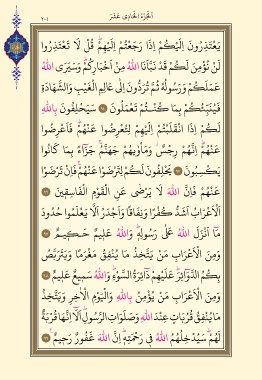 اَلْجُزْءُ الْحَادِي عَشَرَ
٢٠١
يَعْتَذِرُونَ اِلَيْكُمْ اِذَا رَجَعْتُمْ اِلَيْهِمْ قُلْ لَا تَعْتَذِرُوا
لَنْ نُؤْمِنَ لَكُمْ قَدْ نَبَّاَنَا اللهُ مِنْ اَخْبَارِكُمْ وَسَيَرَى اللهُ
عَمَلَكُمْ وَرَسُولُهُ ثُمَّ تُرَدُّونَ اِلٰى عَالِمِ الْغَيْبِ وَالشَّهَادَةِ
فَيُنَبِّئُكُمْ بِمَا كُنْتُمْ تَعْمَلُونَ ٩٤ سَيَحْلِفُونَ بِاللهِ
لَكُمْ اِذَا انْقَلَبْتُمْ اِلَيْهِمْ لِتُعْرِضُوا عَنْهُمْ فَاَعْرِضُوا
عَنْهُمْ اِنَّهُمْ رِجْسٌ وَمَأْوٰيهُمْ جَهَنَّمُ جَزَاءً بِمَا كَانُوا
يَكْسِبُونَ ٩٥ يَحْلِفُونَ لَكُمْ لِتَرْضَوْا عَنْهُمْ فَاِنْ تَرْضَوْا
عَنْهُمْ فَاِنَّ اللهَ لَا يَرْضٰى عَنِ الْقَوْمِ الْفَاسِقِينَ ٩٦
اَلْاَعْرَابُ اَشَدُّ كُفْرًا وَنِفَاقًا وَاَجْدَرُ اَلَّا يَعْلَمُوا حُدُودَ
مَا اَنْزَلَ اللهُ عَلٰى رَسُولِهِ وَاللهُ عَلِيمٌ حَكِيمٌ ٩٧
وَمِنَ الْاَعْرَابِ مَنْ يَتَّخِذُ مَا يُنْفِقُ مَغْرَمًا وَيَتَرَبَّصُ
بِكُمُ الدَّوَائِرَ عَلَيْهِمْ دَائِرَةُ السَّوْءِ وَاللهُ سَمِيعٌ عَلِيمٌ ٩٨
وَمِنَ الْاَعْرَابِ مَنْ يُؤْمِنُ بِاللهِ وَالْيَوْمِ الْاٰخِرِ وَيَتَّخِذُ
مَا يُنْفِقُ قُرُبَاتٍ عِنْدَ اللهِ وَصَلَوَاتِ الرَّسُولِ اَلَا اِنَّهَا قُرْبَةٌ
لَهُمْ سَيُدْخِلُهُمُ اللهُ فِي رَحْمَتِهِ اِنَّ اللهَ غَفُورٌ رَحِيمٌ ٩٩